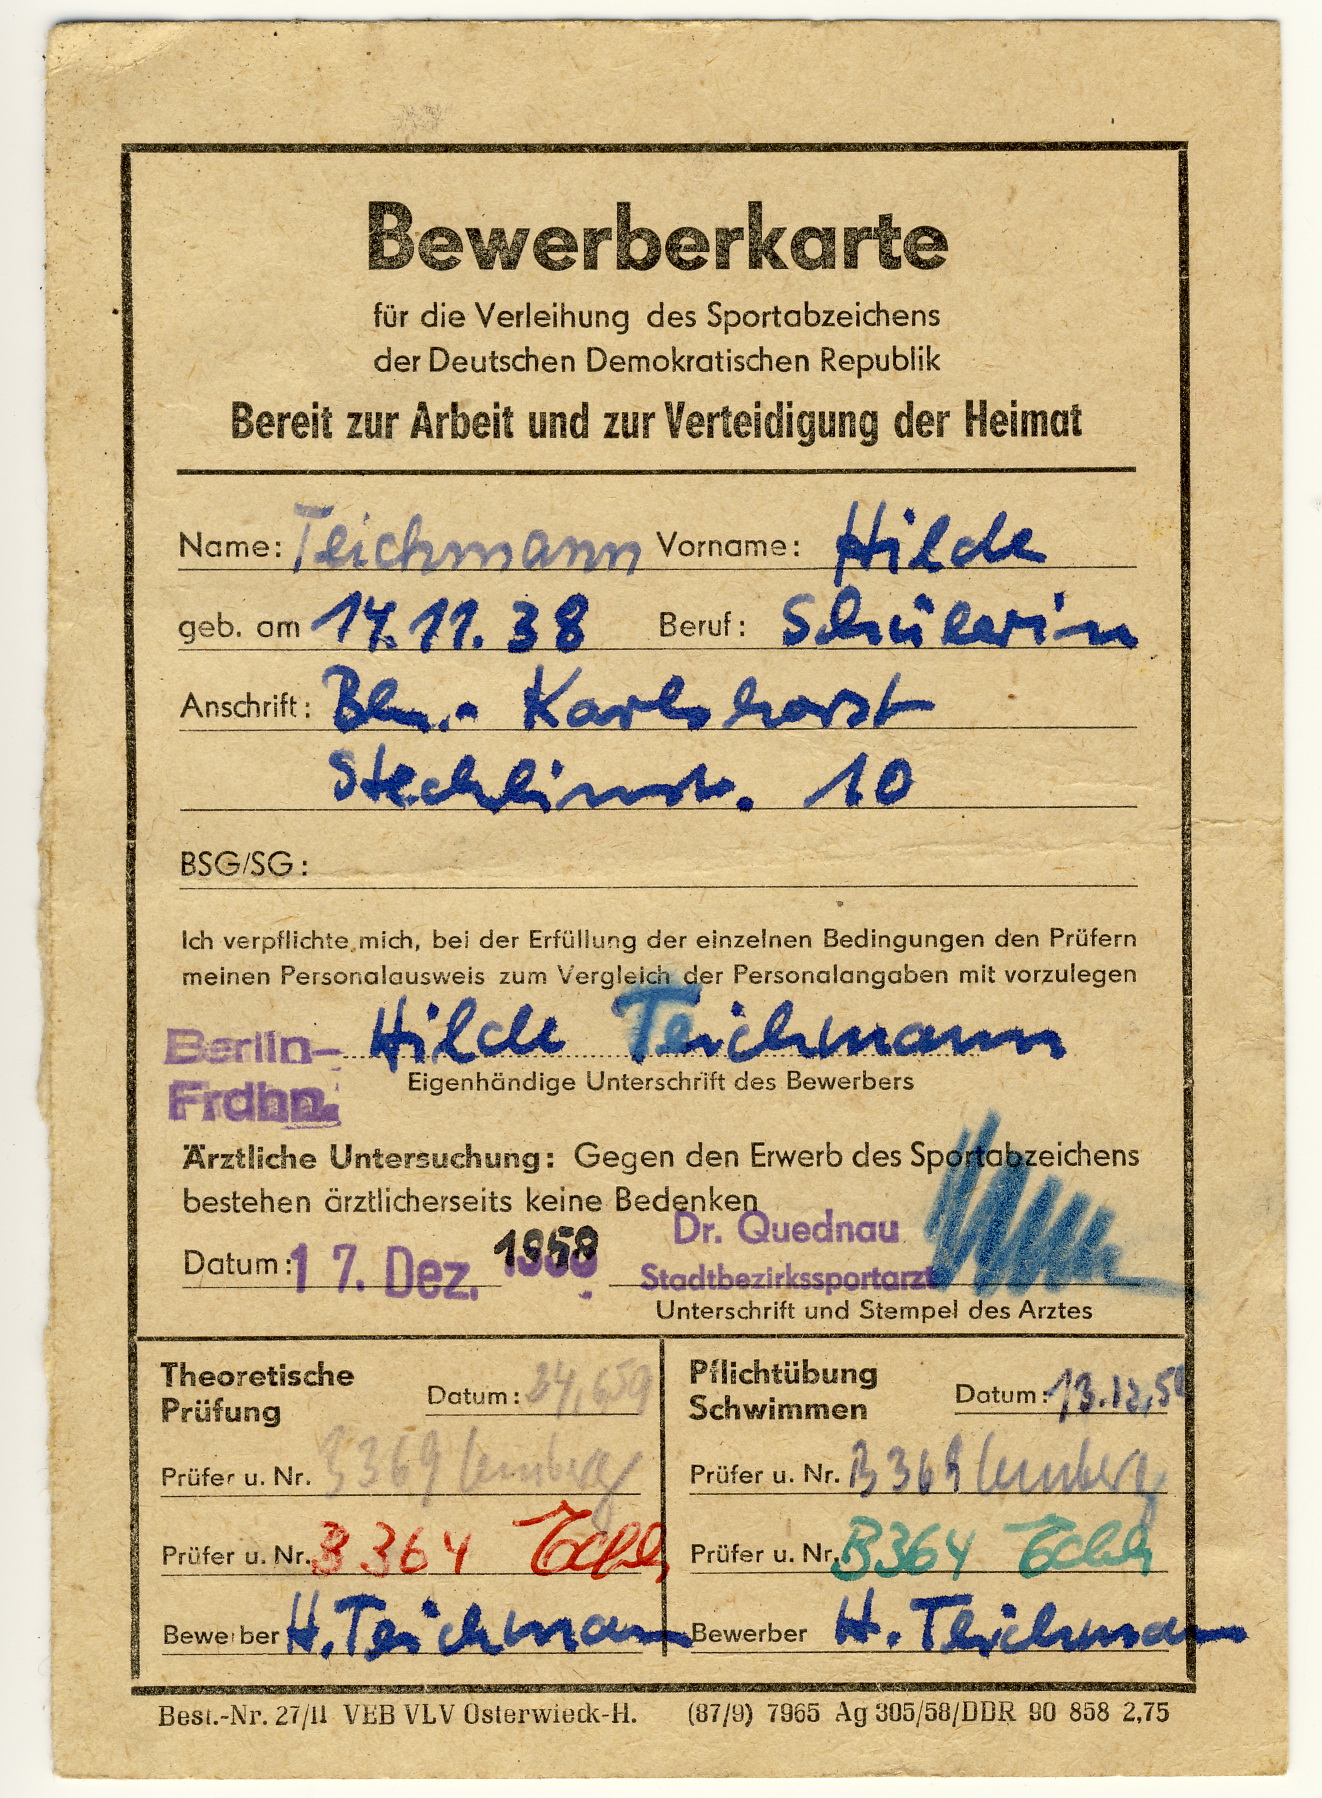 Bewerberkarte
für die Verleihung des Sportabzeichens
der Deutschen Demokratischen Republik
Bereit zur Arbeit und zur Verteidigung der Heimat
Name: Teichmann Vorname: Hilde
geb. am 14.11.38 Beruf: Schülerin
Anschrift: Bln.- Karlshorst
Stechlinstr. 10
BSG/SG:
Ich verpflichte mich, bei der Erfüllung der einzelnen Bedingungen den Prüfern
meinen Personalausweis zum Vergleich der Personalangaben mit vorzulegen
Berlin- Hilde Teichmann
Frdhn. Eigenhändige Unterschrift des Bewerbers
Ärztliche Untersuchung: Gegen den Erwerb des Sportabzeichens
bestehen ärztlicherseits keine Bedenken
Dr. Quednau
Datum: 17. Dez. 1958 Stadtbezirkssportarzt
Unterschrift und Stempel des Arztes
Theoretische
Prüfung Datum:
Prüfer u. Nr. B369
Prüfer u. Nr. B364
Bewerber H. Teichmann
Pflichtübung
Schwimmen Datum: 13.12.58
Prüfer u. Nr. B369
Prüfer u. Nr. B364
Bewerber H. Teichmann
Best.-Nr. 27/11 VEB VLV Osterwieck-H. (87/9) 7965 Ag 305/58/DDR 90 858 2,75